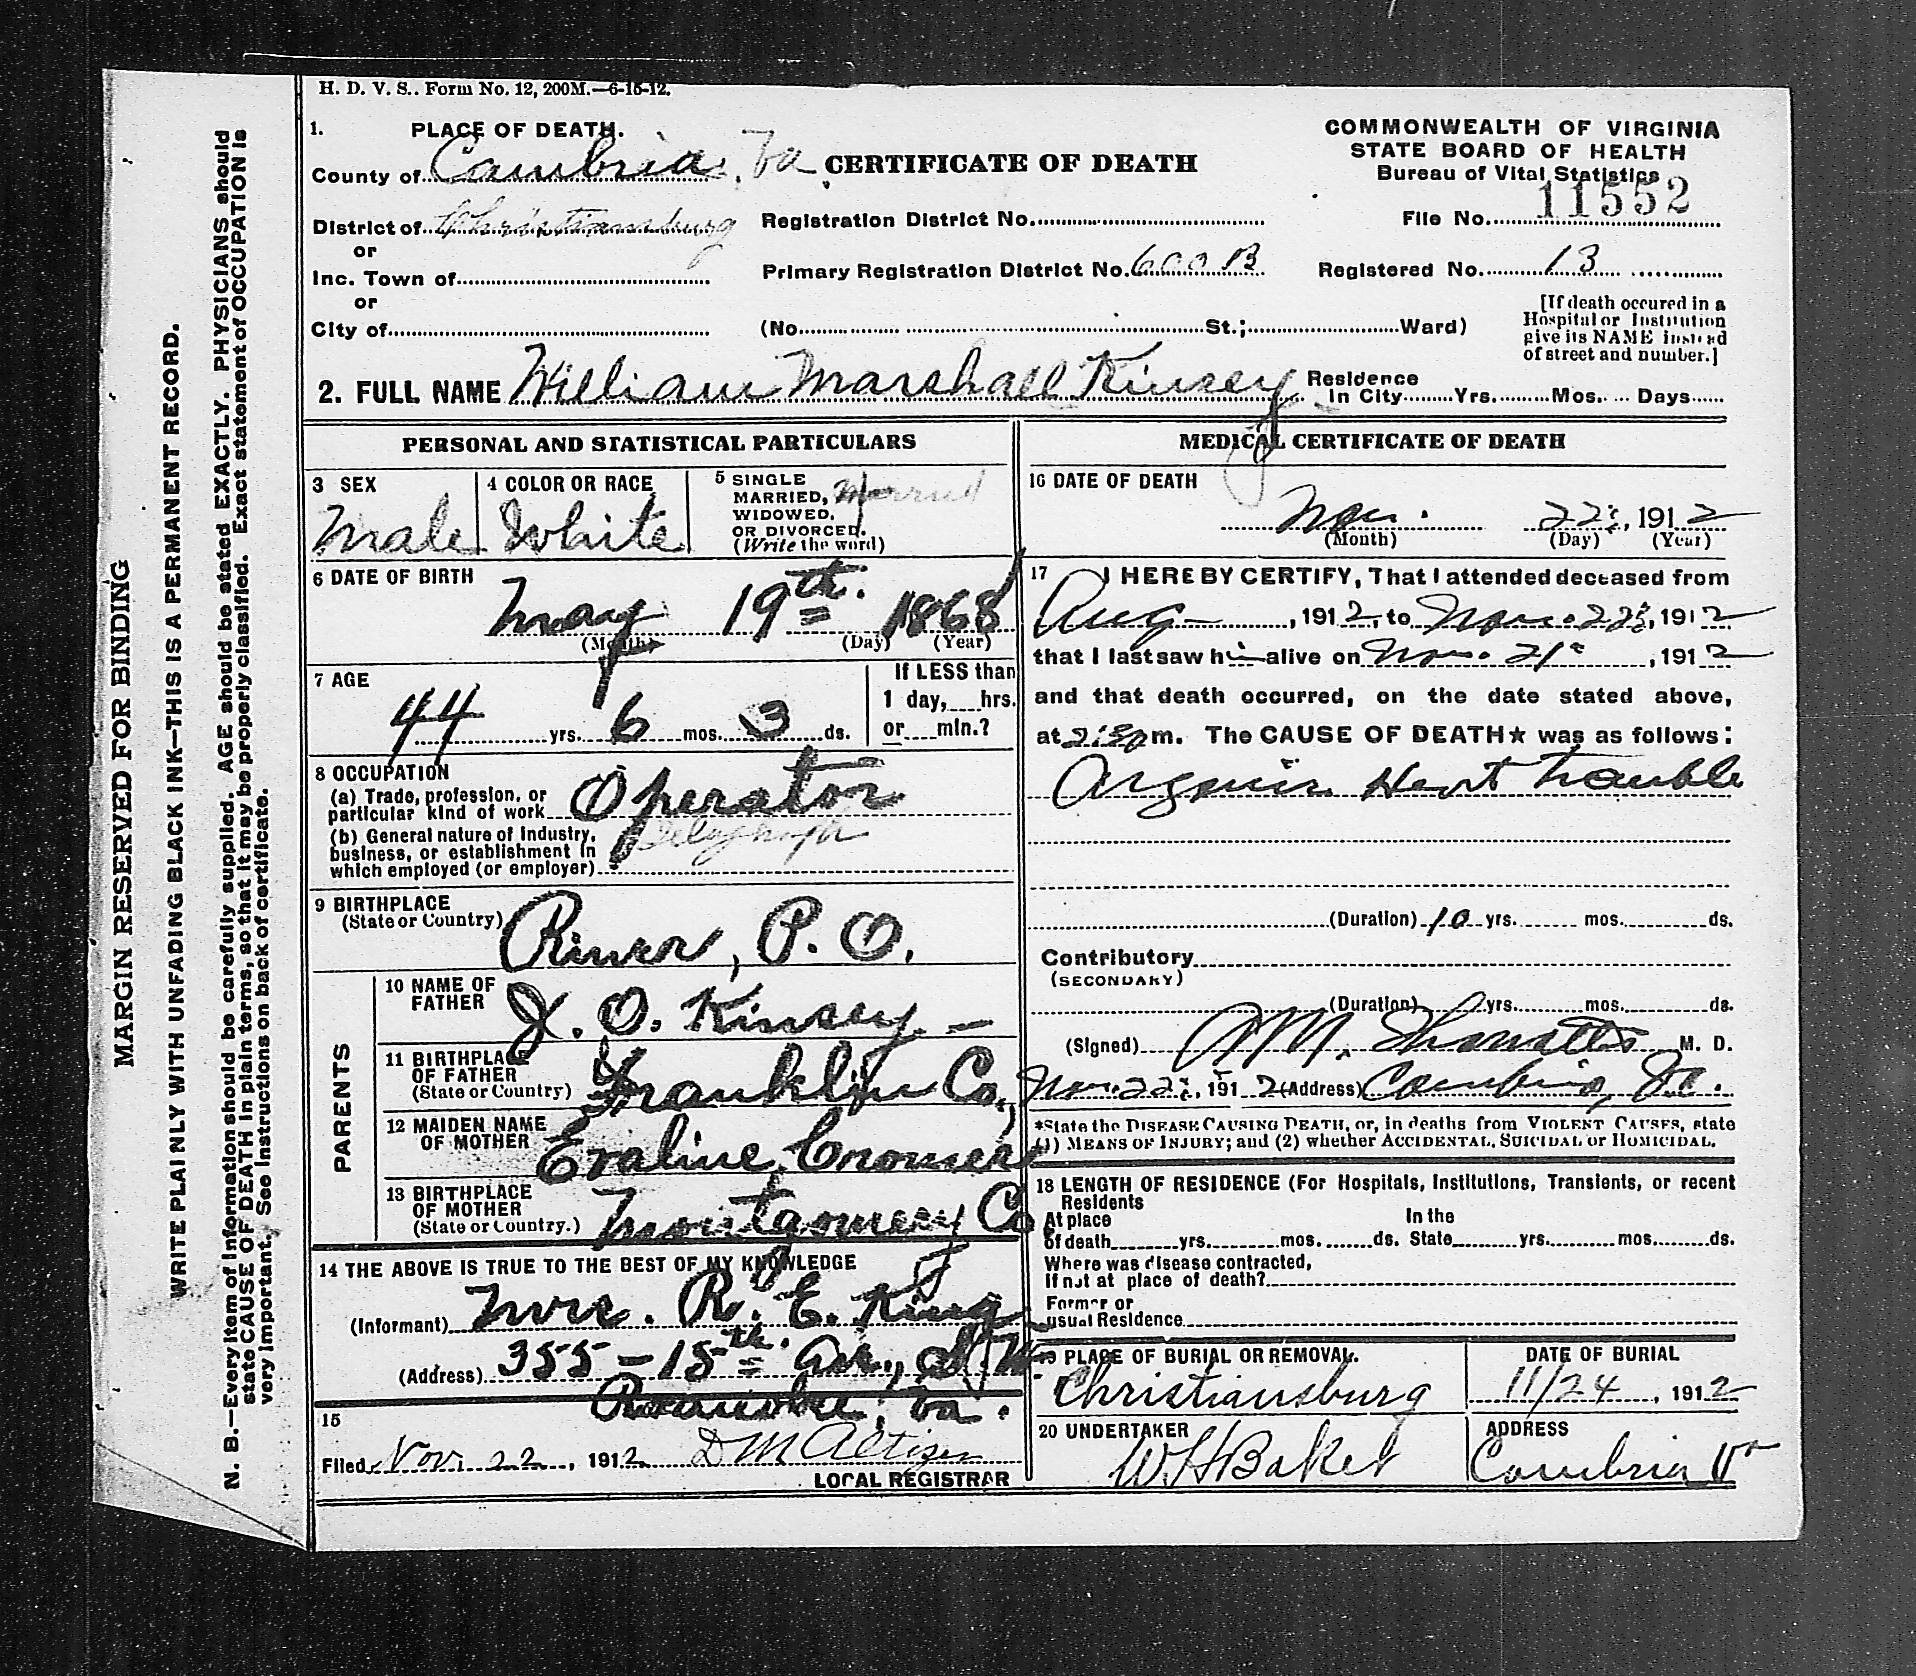 H. D. V. S.. Form No. 12, 200M.—6-15-12.
1. PLACE OF DEATH.
County of Cambria, Va
District of Christiansburg
or
Inc. Town of
or
City of
CERTIFICATE OF DEATH
Registration District No.
Primary Registration District No. 600 B
(No. St.; Ward)
COMMONWEALTH OF VIRGINIA
STATE BOARD OF HEALTH
Bureau of Vital Statistics
File No. 11552
Registered No. 13
[If death occured in a
Hospital or Institution
give its NAME instead
of street and number.]
2. FULL NAME William Marshall Kinsey
Residence
In City Yrs. Mos. Days
PERSONAL AND STATISTICAL PARTICULARS
3 SEX
Male
4 COLOR OR RACE
White
5 SINGLE
MARRIED, Married
WIDOWED,
OR DIVORCED.
(Write the word)
6 DATE OF BIRTH
May 19th. 1868
(Month) (Day) (Year)
7 AGE
44 yrs. 6 mos. 3 ds.
If LESS than
1 day, hrs.
or min.?
8 OCCUPATION
(a) Trade, profession, or
particular kind of work Operator
(b) General nature of Industry,
business, or establishment in
which employed (or employer) Telegraph
9 BIRTHPLACE
(State or Country) Riner, P. O.
PARENTS
10 NAME OF
FATHER J. O. Kinsey
11 BIRTHPLACE
OF FATHER
(State or Country) Franklin Co.,
12 MAIDEN NAME
OF MOTHER Evaline Cromer
13 BIRTHPLACE
OF MOTHER
(State or Country.) Montgomery Co
14 THE ABOVE IS TRUE TO THE BEST OF MY KNOWLEDGE
(Informant) Mrs. R. E. King
(Address) 355 - 15th Ave., S. W.
Roanoke, Va.
15
Filed Nov. 22, 1912 D M Altizer
LOCAL REGISTRAR
MEDICAL CERTIFICATE OF DEATH
16 DATE OF DEATH
Nov. 22, 1912
(Month) (Day) (Year)
17 I HEREBY CERTIFY, That I attended deceased from
Aug , 1912, to Nov. 22, 1912
that I last saw him alive on Nov. 21, 1912
and that death occurred, on the date stated above,
at 2:30 m. The CAUSE OF DEATH★ was as follows:
Heart trouble
(Duration) 10 yrs. mos. ds.
Contributory
(SECONDARY)
(Duration) yrs. mos. ds.
(Signed) M. D.
Nov. 22, 1912 (Address) Cambria, Va.
*State the DISEASE CAUSING DEATH, or, in deaths from VIOLENT CAUSES, state
(1) MEANS OF INJURY; and (2) whether ACCIDENTAL, SUICIDAL or HOMICIDAL.
18 LENGTH OF RESIDENCE (For Hospitals, Institutions, Transients, or recent
Residents
At place
of death yrs. mos. ds.
In the
State yrs. mos. ds.
Where was disease contracted,
If not at place of death?
Former or
usual Residence
19 PLACE OF BURIAL OR REMOVAL.
Christiansburg
DATE OF BURIAL
11/24, 1912
20 UNDERTAKER
W H Baker
ADDRESS
Cambria Va
MARGIN RESERVED FOR BINDING
WRITE PLAINLY WITH UNFADING BLACK INK—THIS IS A PERMANENT RECORD.
N. B.—Every item of information should be carefully supplied. AGE should be stated EXACTLY. PHYSICIANS should
state CAUSE OF DEATH in plain terms, so that it may be properly classified. Exact statement of OCCUPATION is
very important. See instructions on back of certificate.